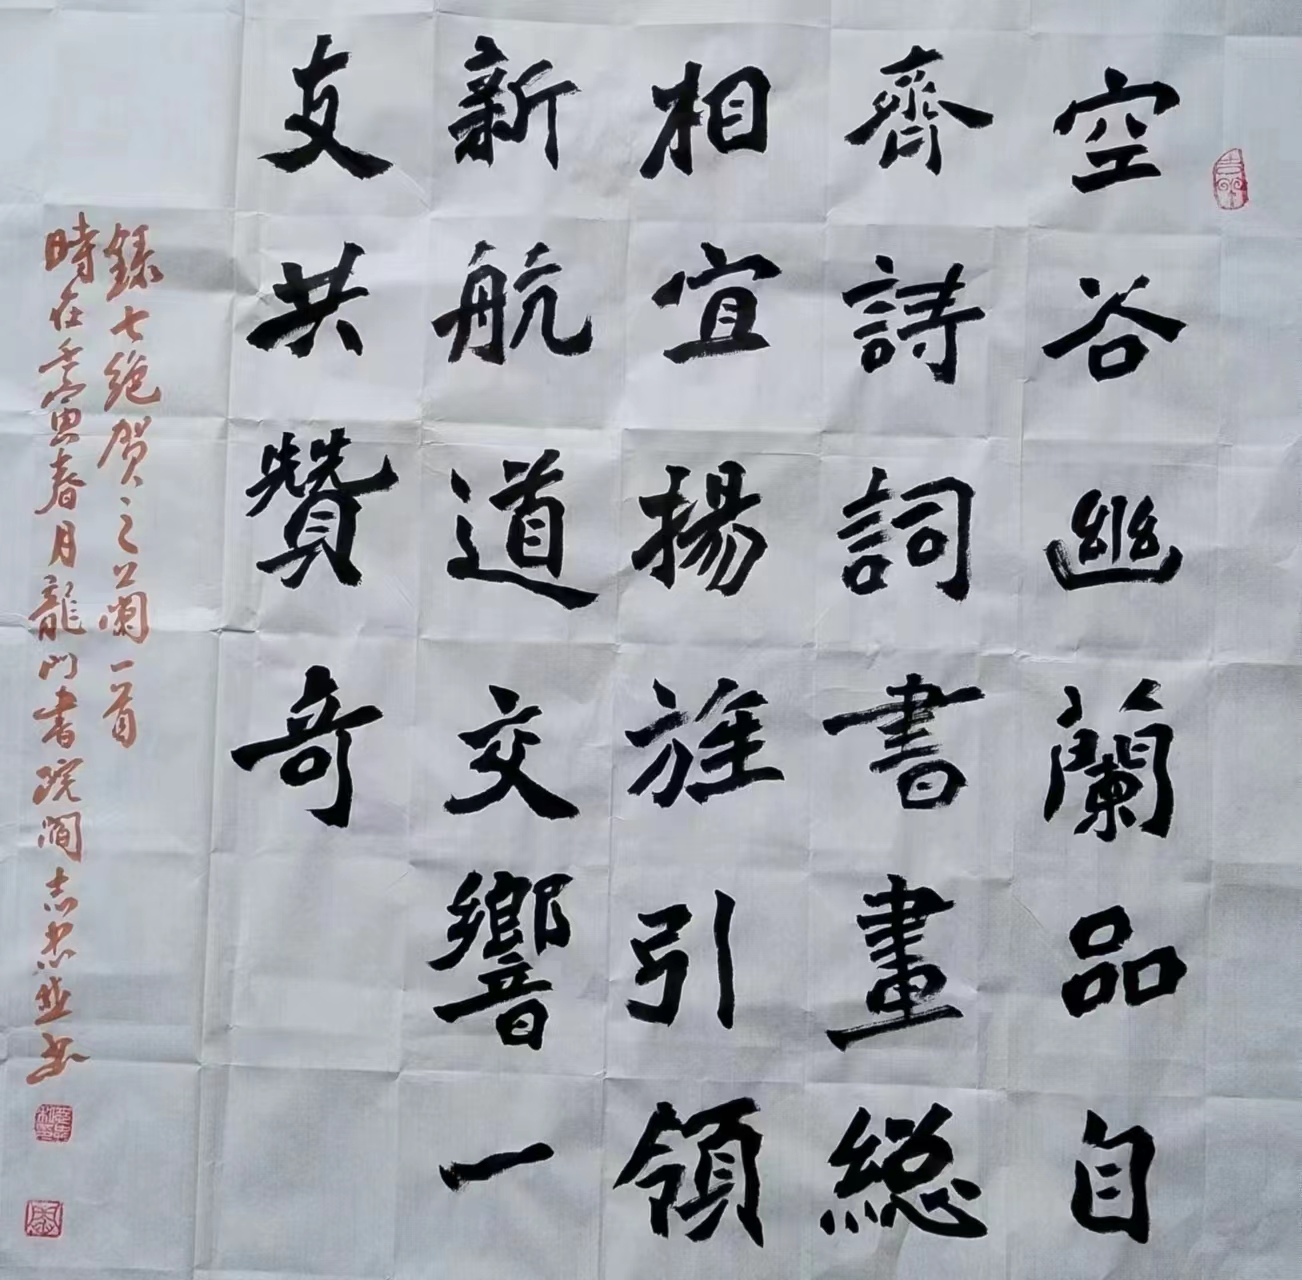 空谷幽蘭品自
齊詩詞書畫総
相宜揚旌引領
新航道交響一
友共贊奇
録七絶賀之蘭一首
時在壬寅春月龍門書院閻志忠並書